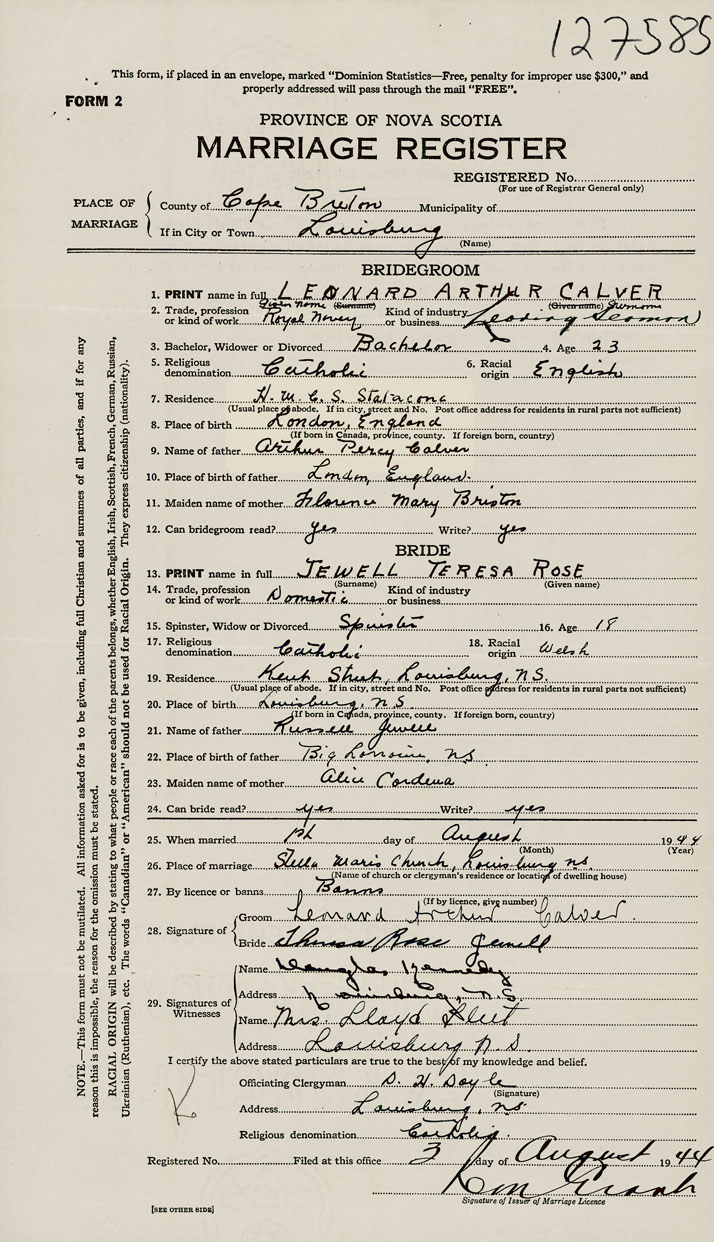 127585
This form, if placed in an envelope, marked "Dominion Statistics—Free, penalty for improper use $300," and
properly addressed will pass through the mail "FREE".
FORM 2
PROVINCE OF NOVA SCOTIA
MARRIAGE REGISTER
REGISTERED No.
(For use of Registrar General only)
PLACE OF MARRIAGE
County of Cape Breton Municipality of
If in City or Town Louisburg
(Name)
BRIDEGROOM
1. PRINT name in full LEONARD ARTHUR CALVER
Given name (Surname) (Given name) Surname
2. Trade, profession or kind of work Royal Navy Kind of industry or business Leading Seaman
3. Bachelor, Widower or Divorced Bachelor 4. Age 23
5. Religious denomination Catholic 6. Racial origin English
7. Residence H. M. C. S. Statacona
(Usual place of abode. If in city, street and No. Post office address for residents in rural parts not sufficient)
8. Place of birth London, England
(If born in Canada, province, county. If foreign born, country)
9. Name of father Arthur Percy Calver
10. Place of birth of father London, England.
11. Maiden name of mother Florence Mary Briston
12. Can bridegroom read? yes Write? yes
BRIDE
13. PRINT name in full JEWELL TERESA ROSE
(Surname) (Given name)
14. Trade, profession or kind of work Domestic Kind of industry or business
15. Spinster, Widow or Divorced Spinster 16. Age 18
17. Religious denomination Catholic 18. Racial origin Welsh
19. Residence Kent Street, Louisburg, N.S.
(Usual place of abode. If in city, street and No. Post office address for residents in rural parts not sufficient)
20. Place of birth Louisburg, N.S
(If born in Canada, province, county. If foreign born, country)
21. Name of father Russell Jewell
22. Place of birth of father Big Lorraine, NS
23. Maiden name of mother Alice Cordena
24. Can bride read? yes Write? yes
25. When married 1st day of August 1944
(Month) (Year)
26. Place of marriage Stella Maris Church, Louisburg ns.
(Name of church or clergyman's residence or location of dwelling house)
27. By licence or banns Banns
(If by licence, give number)
28. Signature of
Groom Leonard Arthur Calver.
Bride Theresa Rose Jewell
29. Signatures of Witnesses
Name Douglas Kennedy
Address Louisburg, N.S.
Name Mrs Lloyd
Address Louisburg N.S.
I certify the above stated particulars are true to the best of my knowledge and belief.
Officiating Clergyman D. H. Doyle
(Signature)
Address Louisburg, ns
Religious denomination Catholic.
Registered No. Filed at this office 3 day of August 1944
Signature of Issuer of Marriage Licence
[SEE OTHER SIDE]
NOTE.—This form must not be mutilated. All information asked for is to be given, including full Christian and surnames of all parties, and if for any
reason this is impossible, the reason for the omission must be stated.
RACIAL ORIGIN will be described by stating to what people or race each of the parents belongs, whether English, Irish, Scottish, French, German, Russian,
Ukrainian (Ruthenian), etc. The words "Canadian" or "American" should not be used for Racial Origin. They express citizenship (nationality).